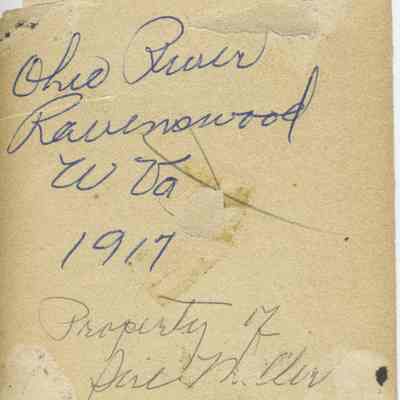 Ohio River
Ravenswood
W Va
1917
Property of
Miller